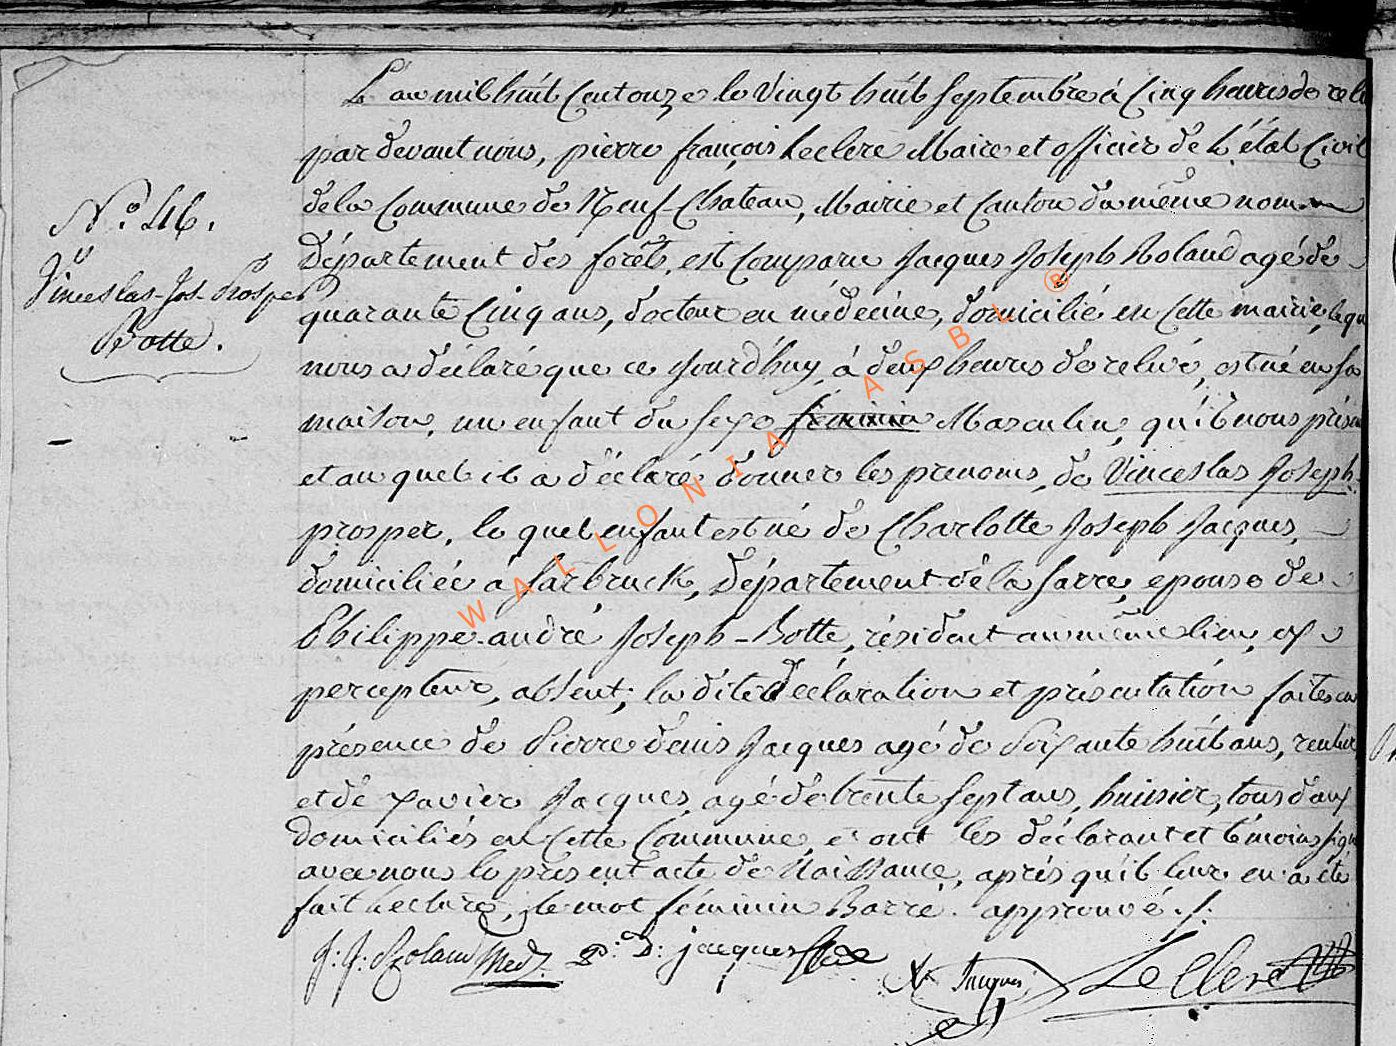 L'an mil huit Cent onze le Vingt huit Septembre à Cinq heures de reli
par devant nous, pierre françois Leclere Maire et officier de L'état Civil
de la Commune de Neuf-Chateau, Mairie et Canton du même nom
N.° 46.
Département des forêts, est Comparu Jacques Joseph Roland agé de
Vinceslas-Jos-Prosper
quarante Cinq ans, docteur en médecine, domicilié en Cette mairie, lequ
Botte.
nous a déclaré que ce jourd'huy à deux heures de relivé, est né en sa
maison, un enfant du sexe féminin Masculin, qu'il nous présen
et au quel il a déclaré donner les prenoms, de Vinceslas Joseph
prosper, le quel enfant est né de Charlotte Joseph Jacques,
domiciliée à Sarbruck, Département de la Sarre, epouse de
Philippe-andré Joseph-Botte, résident au même lieu, ex
percepteur, absent; la dite Déclaration et présentation faites en
présence de Pierre denis Jacques agé de Soixante huit ans, rentier
et de xavier Jacques agé de trente Sept ans, huissier, tous deux
domiciliés en Cette Commune, et ont les déclarant et témoins sign
avec nous le présent acte de Naissance, après qu'il leur en a été
fait Lecture, le mot féminin Barré. approuvé ./.
J: J: Roland Med. P: D: jacques
X Jacques
LeClere
WALLONIA ASBL ®